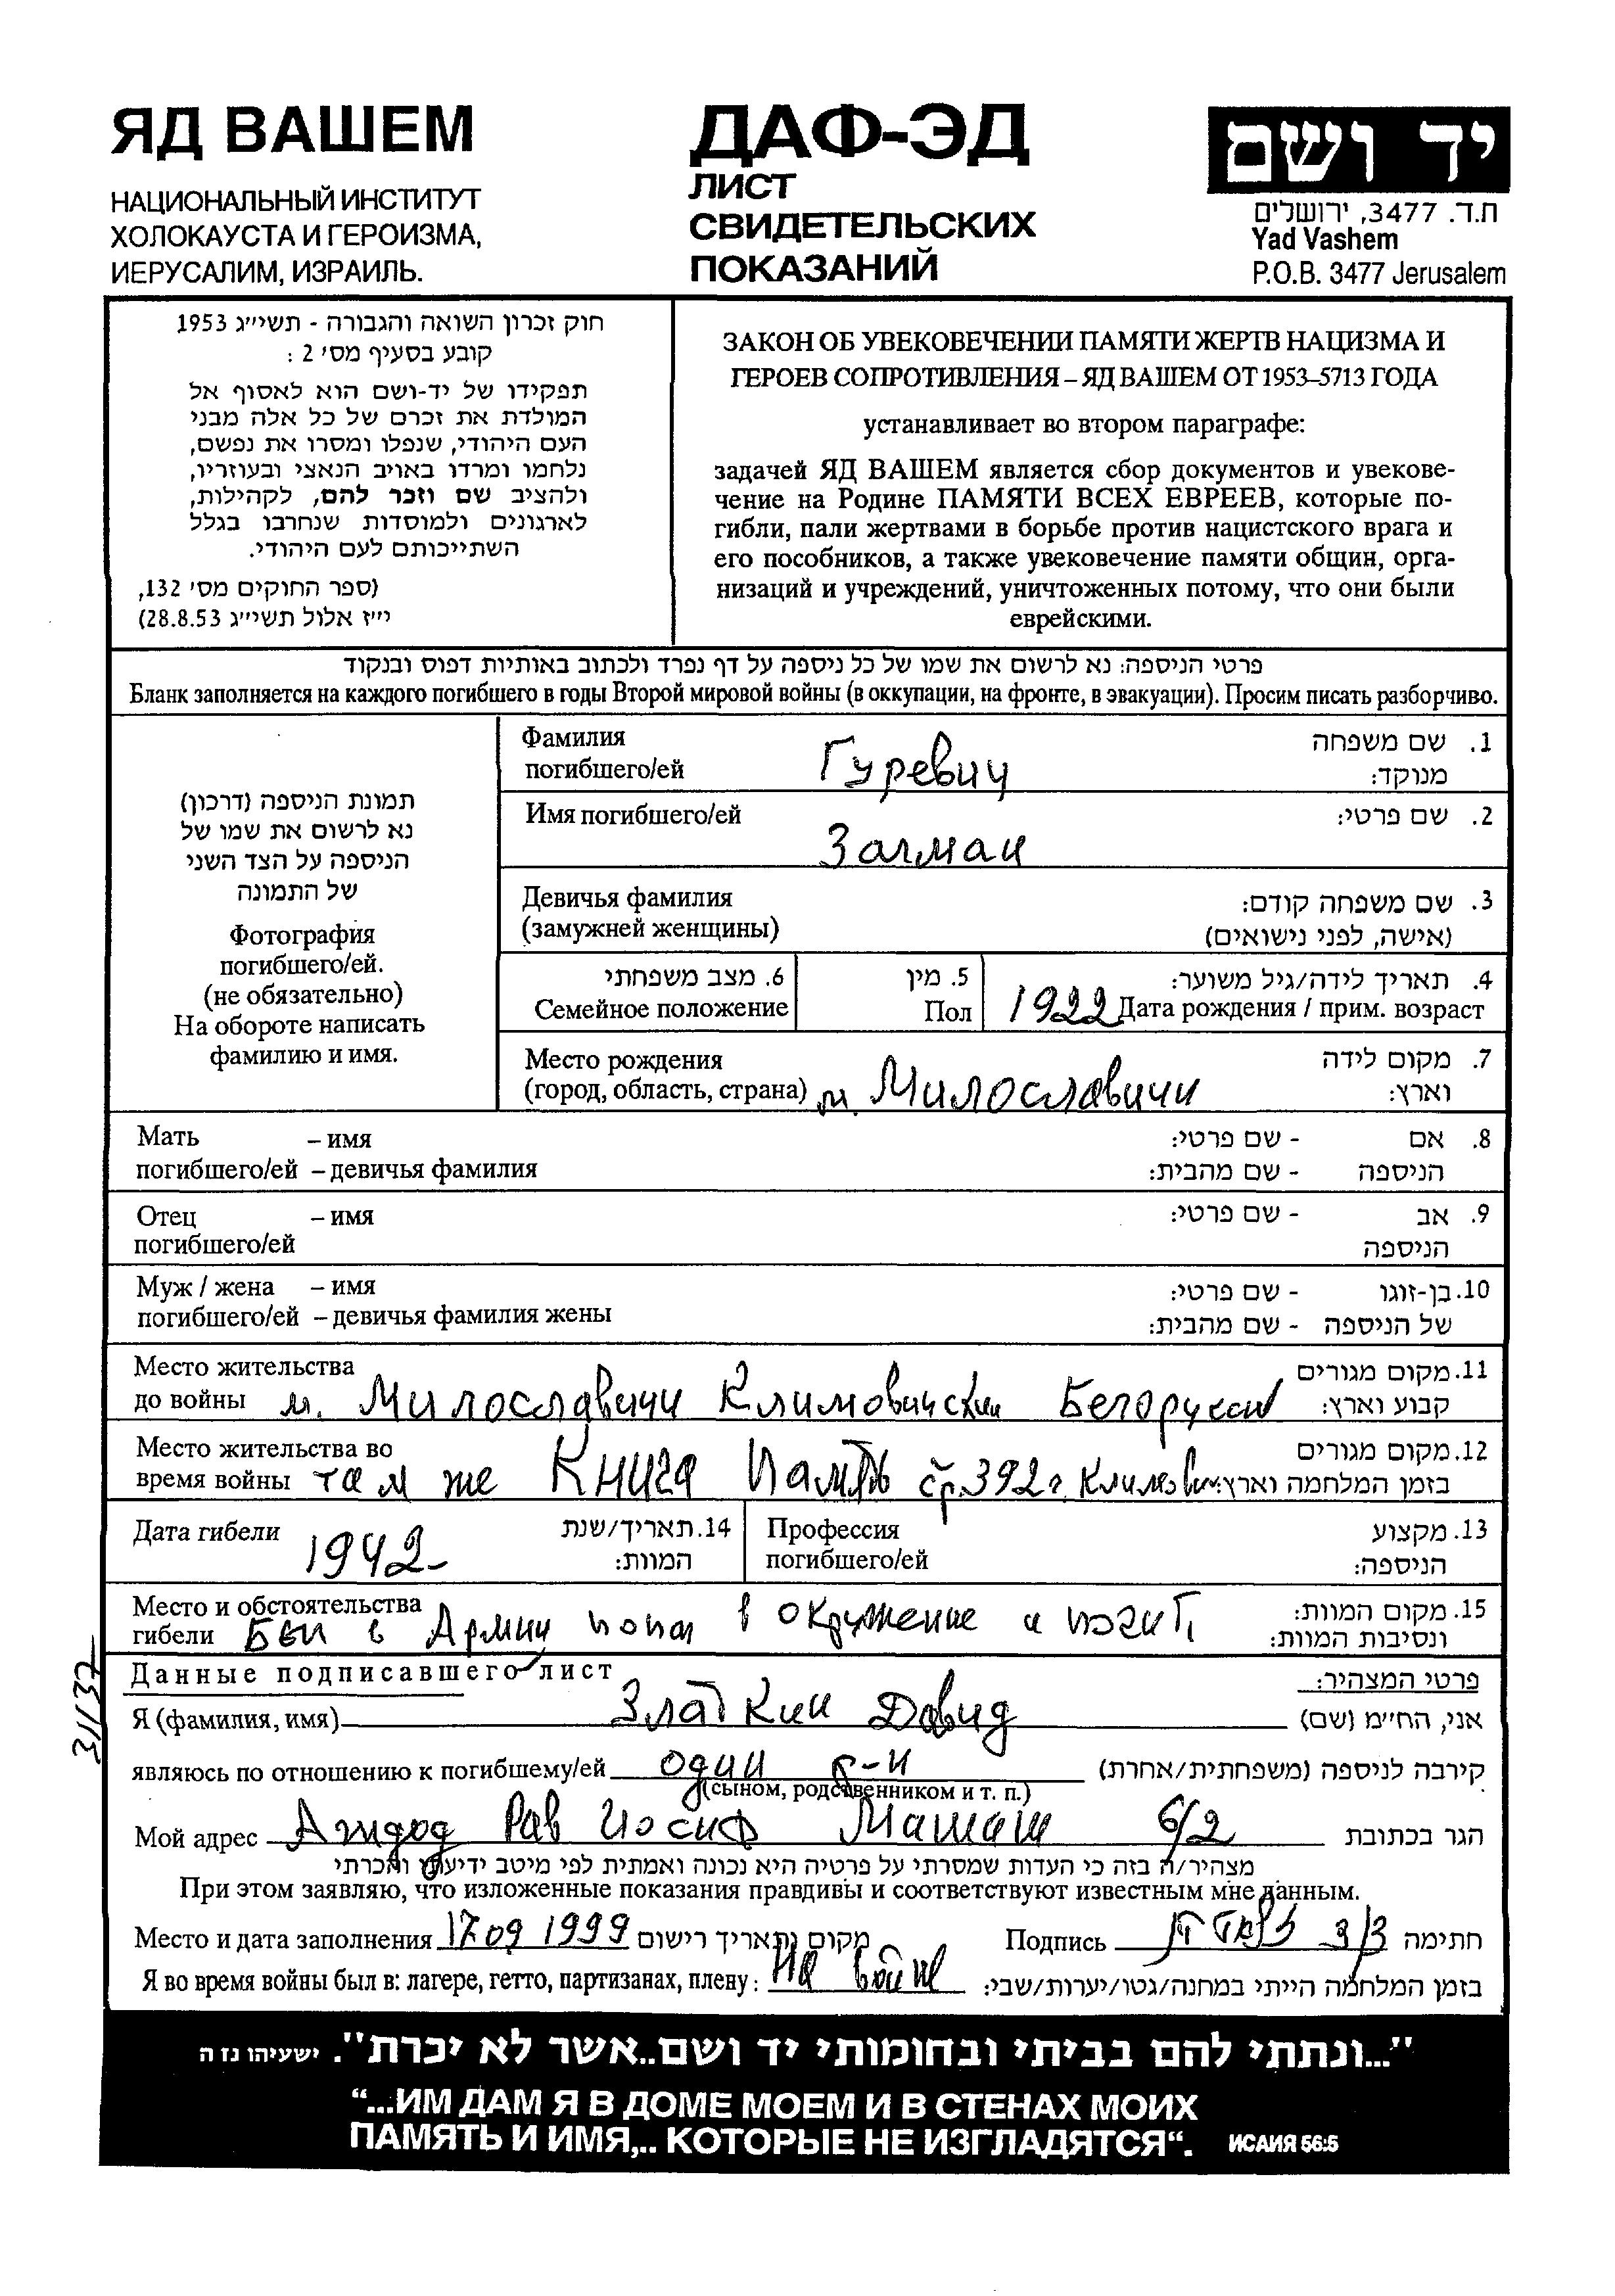 ЯД ВАШЕМ
НАЦИОНАЛЬНЫЙ ИНСТИТУТ
ХОЛОКАУСТА И ГЕРОИЗМА,
ИЕРУСАЛИМ, ИЗРАИЛЬ.
ДАФ-ЭД
ЛИСТ
СВИДЕТЕЛЬСКИХ
ПОКАЗАНИЙ
יד ושם
ת.ד. 3477, ירושלים
Yad Vashem
P.O.B. 3477 Jerusalem
חוק זכרון השואה והגבורה - תשי״ג 1953
קובע בסעיף מס׳ 2 :
תפקידו של יד-ושם הוא לאסוף אל
המולדת את זכרם של כל אלה מבני
העם היהודי, שנפלו ומסרו את נפשם,
נלחמו ומרדו באויב הנאצי ובעוזריו,
ולהציב שם וזכר להם, לקהילות,
לארגונים ולמוסדות שנחרבו בגלל
השתייכותם לעם היהודי.
(ספר החוקים מס׳ 132,
י״ז אלול תשי״ג 28.8.53)
ЗАКОН ОБ УВЕКОВЕЧЕНИИ ПАМЯТИ ЖЕРТВ НАЦИЗМА И
ГЕРОЕВ СОПРОТИВЛЕНИЯ – ЯД ВАШЕМ ОТ 1953–5713 ГОДА
устанавливает во втором параграфе:
задачей ЯД ВАШЕМ является сбор документов и увекове-
чение на Родине ПАМЯТИ ВСЕХ ЕВРЕЕВ, которые по-
гибли, пали жертвами в борьбе против нацистского врага и
его пособников, а также увековечение памяти общин, орга-
низаций и учреждений, уничтоженных потому, что они были
еврейскими.
פרטי הניספה: נא לרשום את שמו של כל ניספה על דף נפרד ולכתוב באותיות דפוס ובנקוד
Бланк заполняется на каждого погибшего в годы Второй мировой войны (в оккупации, на фронте, в эвакуации). Просим писать разборчиво.
תמונת הניספה (דרכון)
נא לרשום את שמו של
הניספה על הצד השני
של התמונה
Фотография
погибшего/ей.
(не обязательно)
На обороте написать
фамилию и имя.
Фамилия 1. שם משפחה
погибшего/ей Гуревич מנוקד:
Имя погибшего/ей 2. שם פרטי:
Залман
Девичья фамилия 3. שם משפחה קודם:
(замужней женщины) (אישה, לפני נישואים)
6. מצב משפחתי 5. מין 4. תאריך לידה/גיל משוער:
Семейное положение Пол 1922 Дата рождения / прим. возраст
Место рождения 7. מקום לידה
(город, область, страна) м. Милославичи וארץ:
Мать – имя 8. אם - שם פרטי:
погибшего/ей – девичья фамилия הניספה - שם מהבית:
Отец – имя 9. אב - שם פרטי:
погибшего/ей הניספה
Муж / жена – имя 10. בן-זוגו - שם פרטי:
погибшего/ей – девичья фамилия жены של הניספה - שם מהבית:
Место жительства 11. מקום מגורים
до войны м. Милославичи קבוע וארץ:
Место жительства во 12. מקום מגורים
время войны там же Книга стр. 392 בזמן המלחמה וארץ:
Дата гибели 1942 14. תאריך/שנת Профессия 13. מקצוע
המוות: погибшего/ей הניספה:
Место и обстоятельства 15. מקום המוות:
гибели в Армии попал в окружение и ונסיבות המוות:
31/137
Данные подписавшего лист פרטי המצהיר:
Я (фамилия, имя) Златкин Давид אני, הח״מ (שם)
являюсь по отношению к погибшему/ей один קירבה לניספה (משפחתית/אחרת)
(сыном, родственником и т. п.)
Мой адрес Ашдод Рав Иосиф Машаш 6/2 הגר בכתובת
מצהיר/ה בזה כי העדות שמסרתי על פרטיה היא נכונה ואמתית לפי מיטב ידיעתי והכרתי
При этом заявляю, что изложенные показания правдивы и соответствуют известным мне данным.
Место и дата заполнения 17 09 1999 מקום ותאריך רישום Подпись חתימה
Я во время войны был в: лагере, гетто, партизанах, плену: На войне בזמן המלחמה הייתי במחנה/גטו/יערות/שבי:
"...ונתתי להם בביתי ובחומותי יד ושם..אשר לא יכרת". ישעיהו נז ה
“...ИМ ДАМ Я В ДОМЕ МОЕМ И В СТЕНАХ МОИХ
ПАМЯТЬ И ИМЯ,.. КОТОРЫЕ НЕ ИЗГЛАДЯТСЯ“. ИСАИЯ 56:5